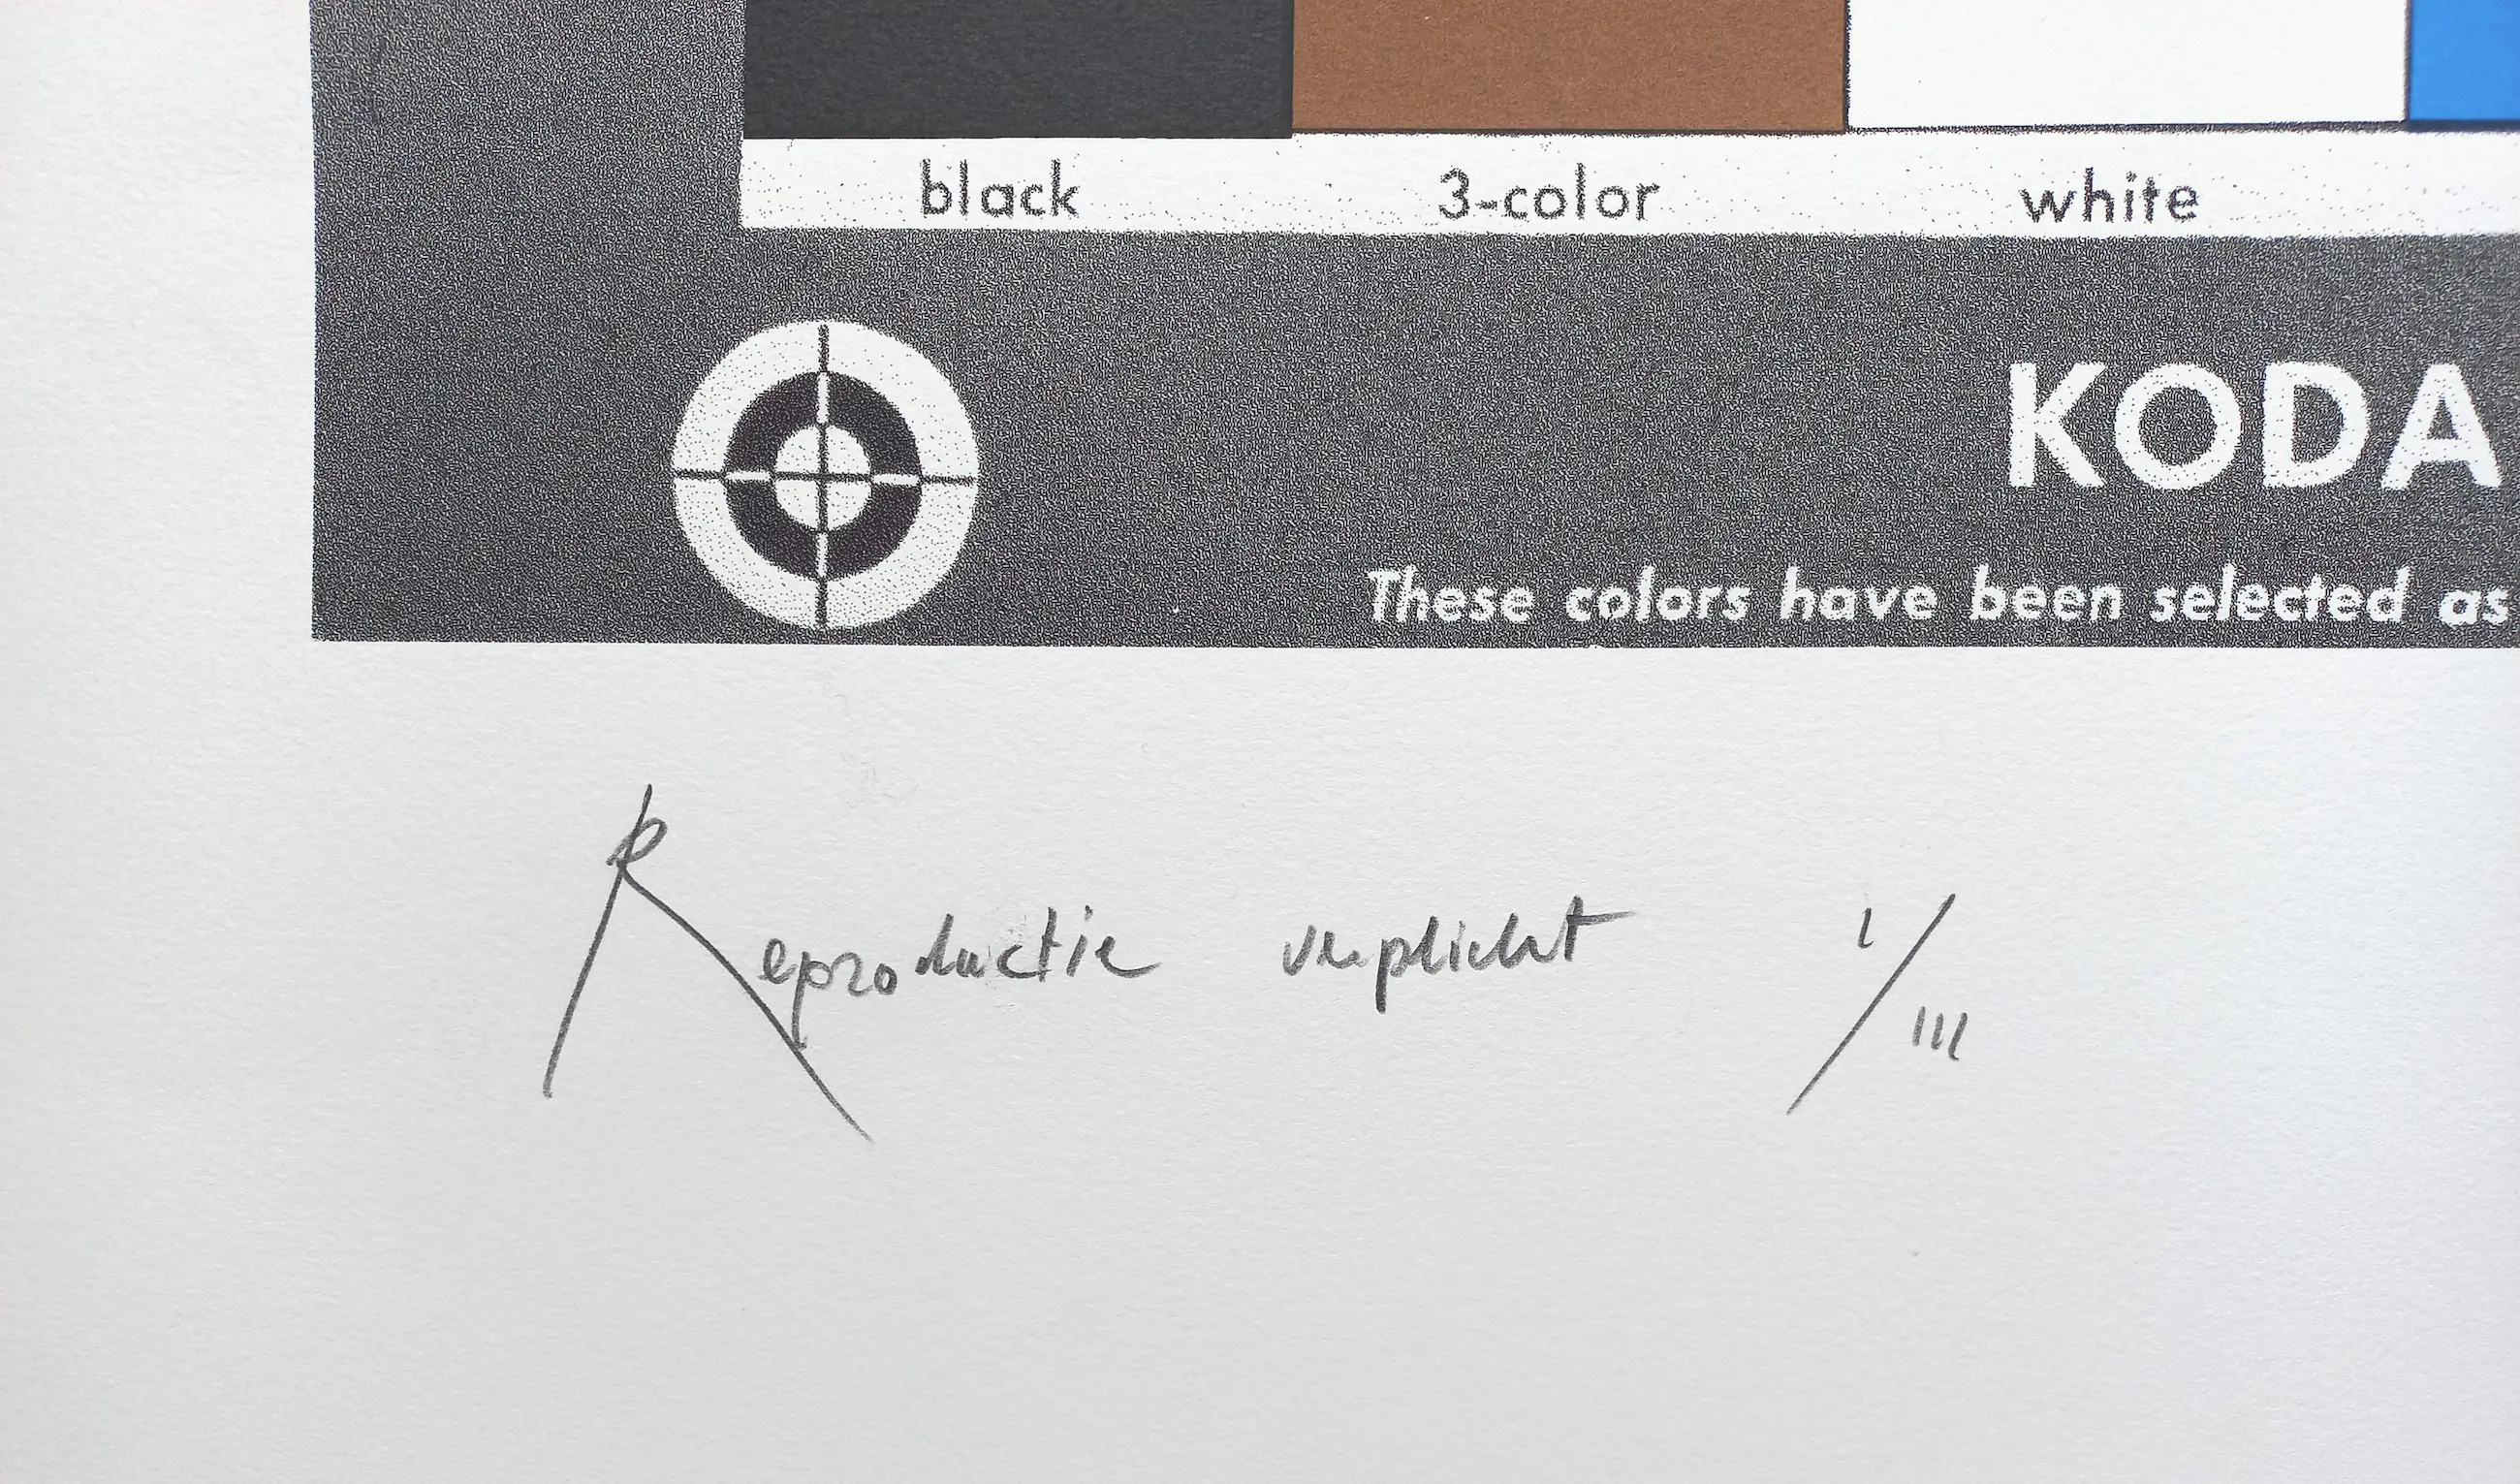 black 3-color white
KODA
These colors have been selected as
Reproductie verplicht I/III